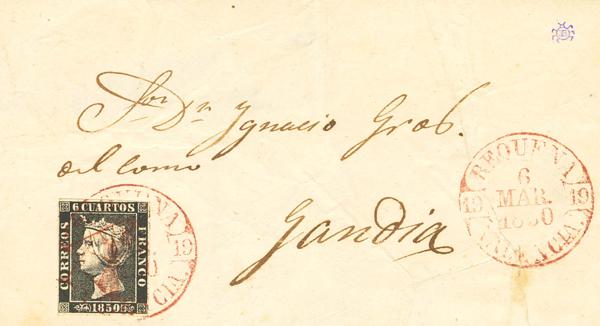 Sor. Dn. Ygnacio Gros.
del como
Gandia
REQUENA
6
MAR.
1850
19 19
VALENCIA
6 CUARTOS
CORREOS
FRANCO
1850
19